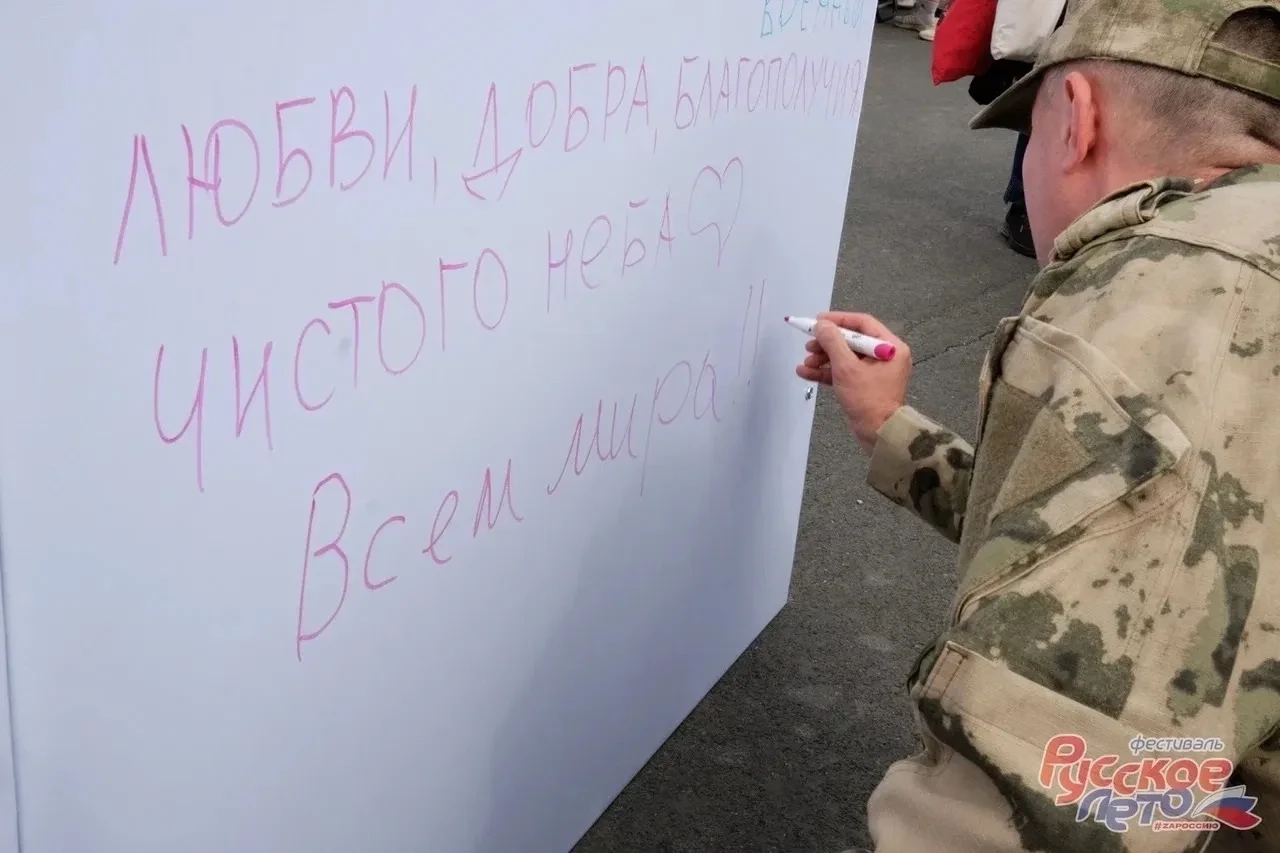 ЛЮБВИ, ДОБРА, БЛАГОПОЛУЧИЯ
ЧИСТОГО НЕБА
Всем мира!!
фестиваль
Русское
лето
#ZAРОССИЮ